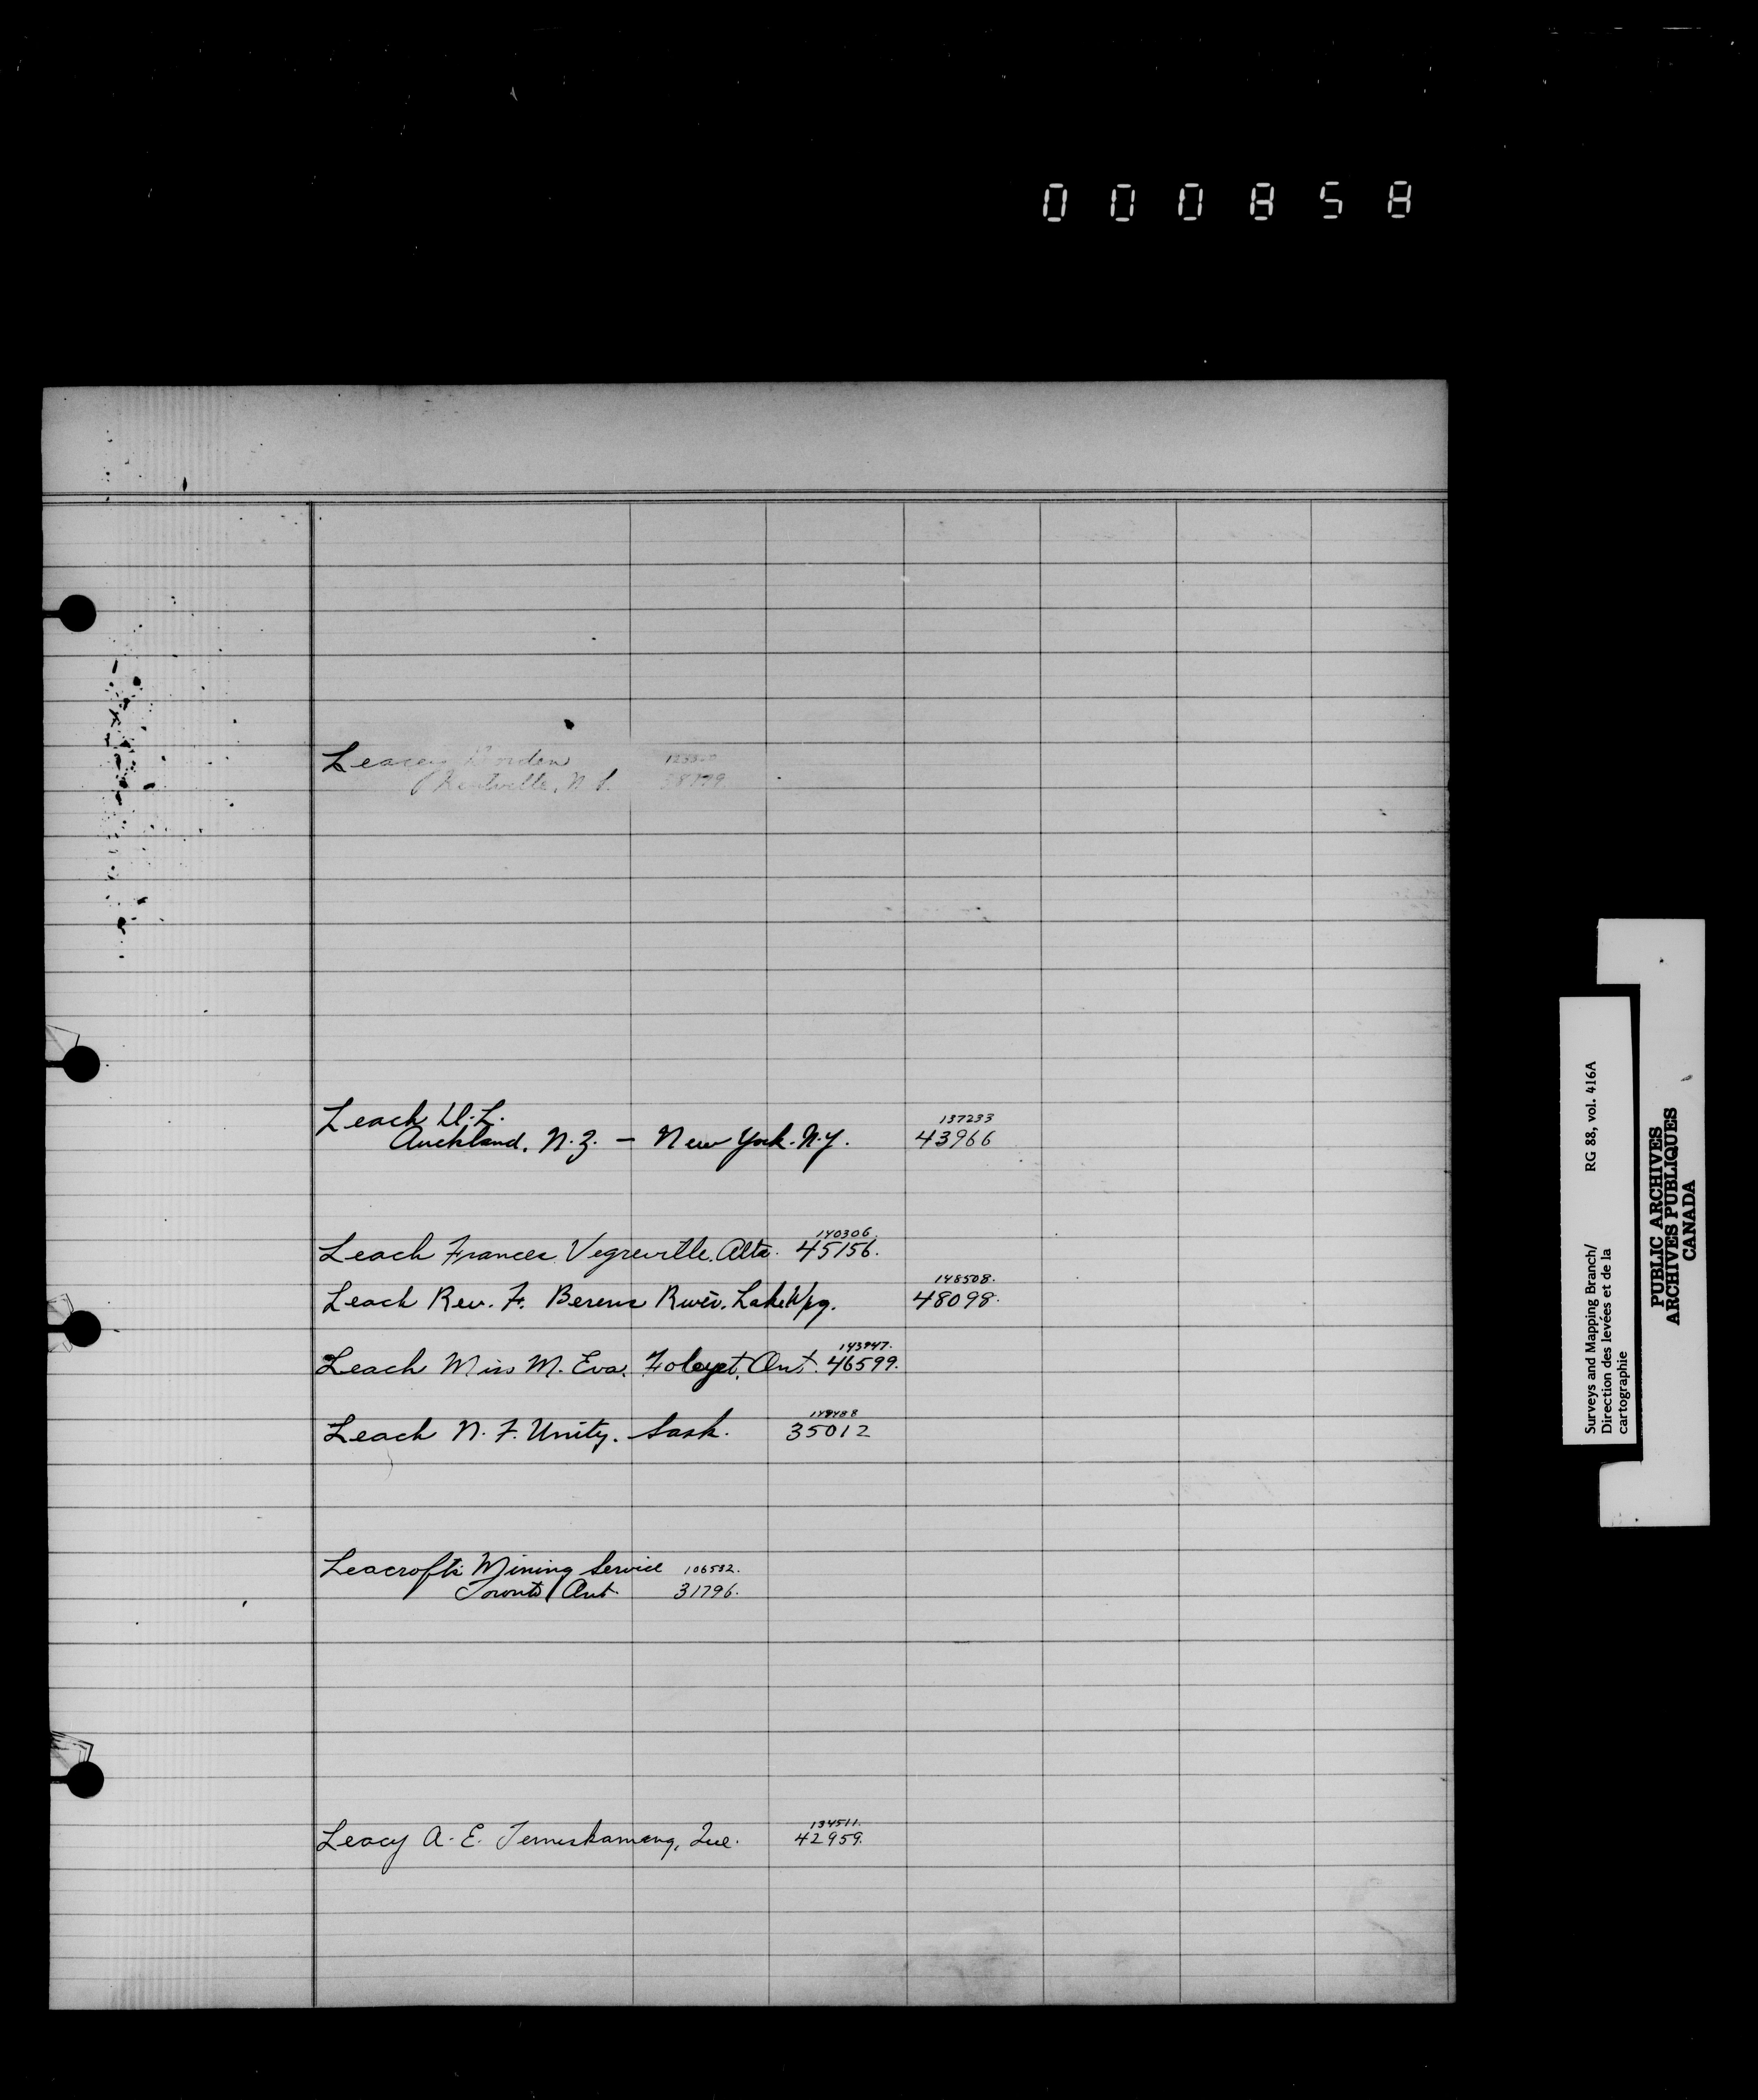 000858
Leacey Borden
Kentville, N.S. 38779.
Leach D.L. 137233
Auckland, N.Z. — New York. N.Y. 43966
140306.
Leach Frances Vegreville. Alta. 45156.
148508.
Leach Rev. F. Berens River. Lake Wpg. 48098.
143947.
Leach Miss M. Eva. Foleyet, Ont. 46599.
Leach N. F. Unity. Sask. 35012
Leacrofts Mining Service 106532.
Toronto, Ont 31796.
134511.
Leacy A. E. Temiskaming, Que. 42959.
Surveys and Mapping Branch/ RG 88, vol. 416A
Direction des levées et de la
cartographie
PUBLIC ARCHIVES
ARCHIVES PUBLIQUES
CANADA